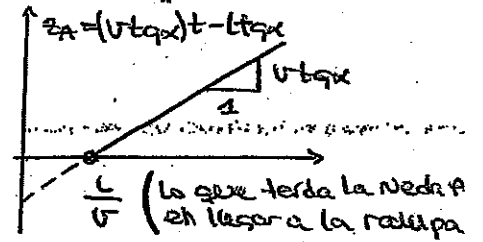 z_A = (v tgα)t - L tgα
v tgα
1
L/v (Lo que tarda la rueda A
en llegar a la rampa